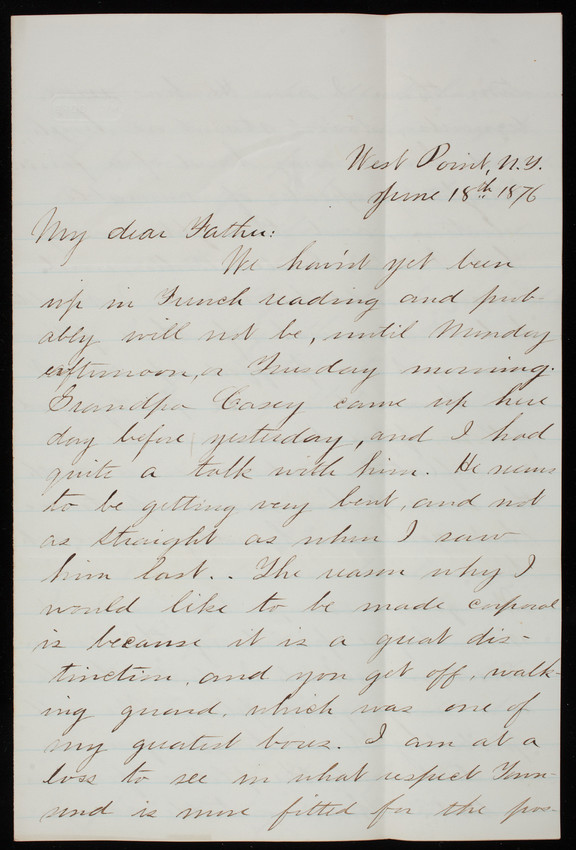 West Point, N.Y.
June 18th 1876
My dear Father:
We hav'nt yet been
up in French reading and prob-
ably will not be, until Monday
afternoon, or Tuesday morning.
Grandpa Casey came up here
day before yesterday, and I had
quite a talk with him. He seems
to be getting very bent, and not
as straight as when I saw
him last.. The reason why I
would like to be made corporal
is because it is a great dis-
tinction, and you get off, walk-
ing guard, which was one of
my greatest bores. I am at a
loss to see in what respect Town-
send is more fitted for the pos-